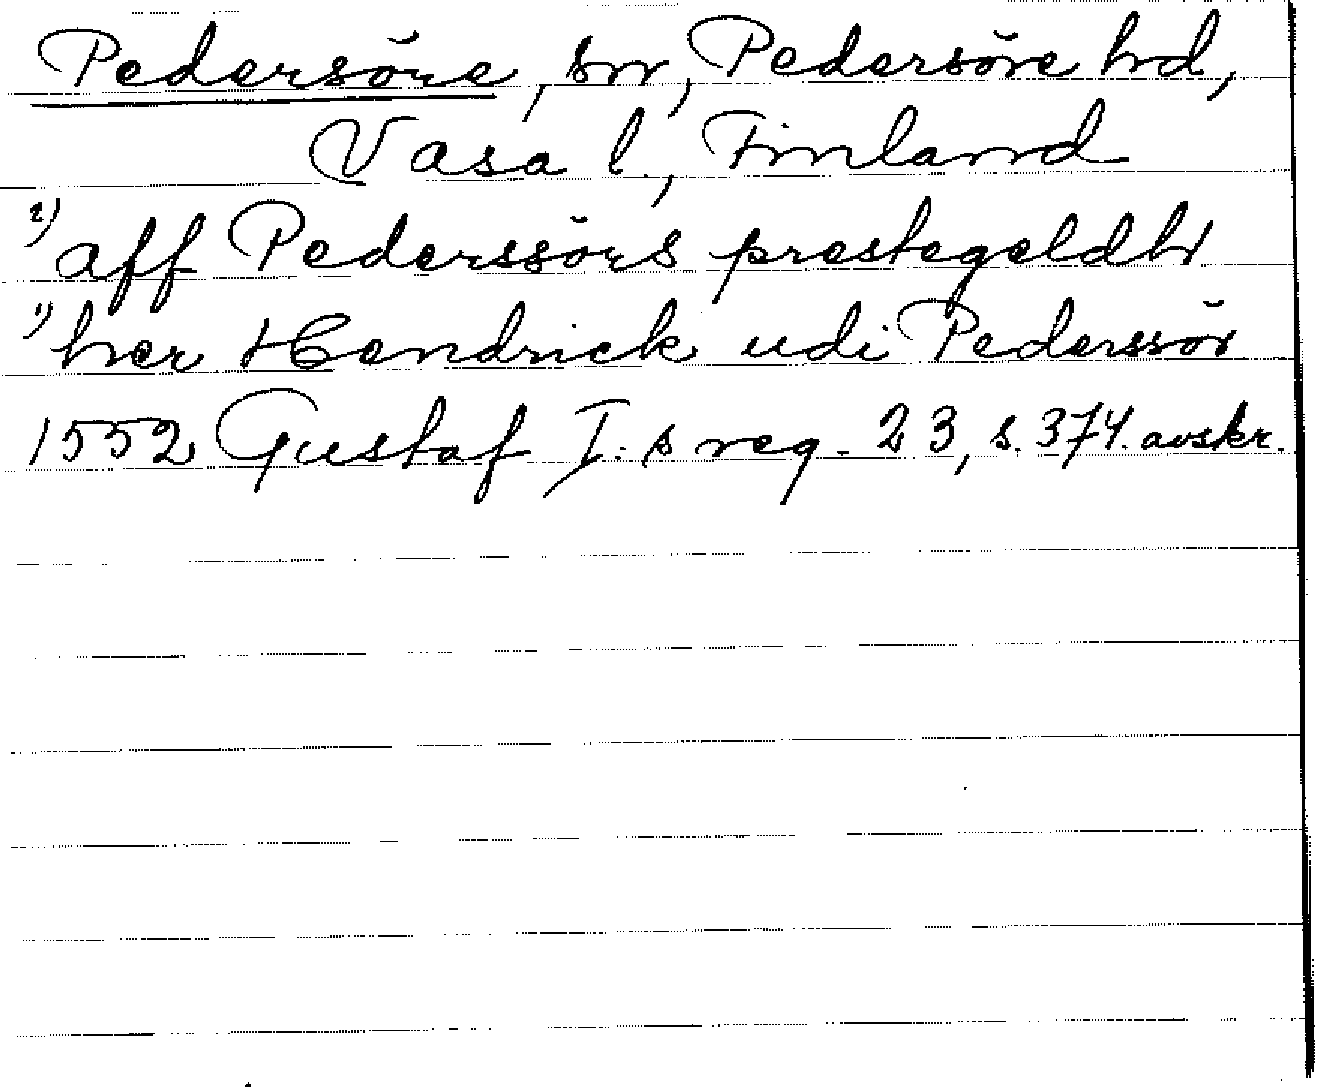 Pedersöre, sn, Pedersöre hd,
Vasa l., Finland
2) aff Pederssörs prestegeldh
1) her Hendrick udi Pederssör
1552 Gustaf I:s reg. 23, s. 374. avskr.